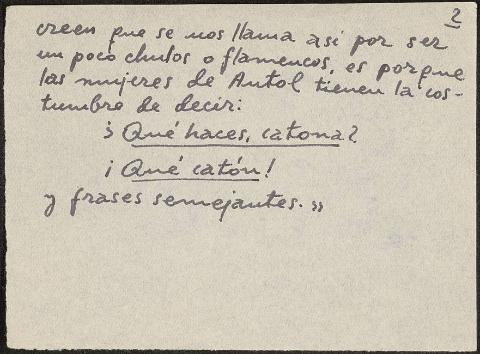 2
creen que se nos llama así por ser
un poco chulos o flamencos, es porque
las mujeres de Autol tienen la cos-
tumbre de decir:
¿Qué haces, catona?
¡Qué catón!
y frases semejantes.»